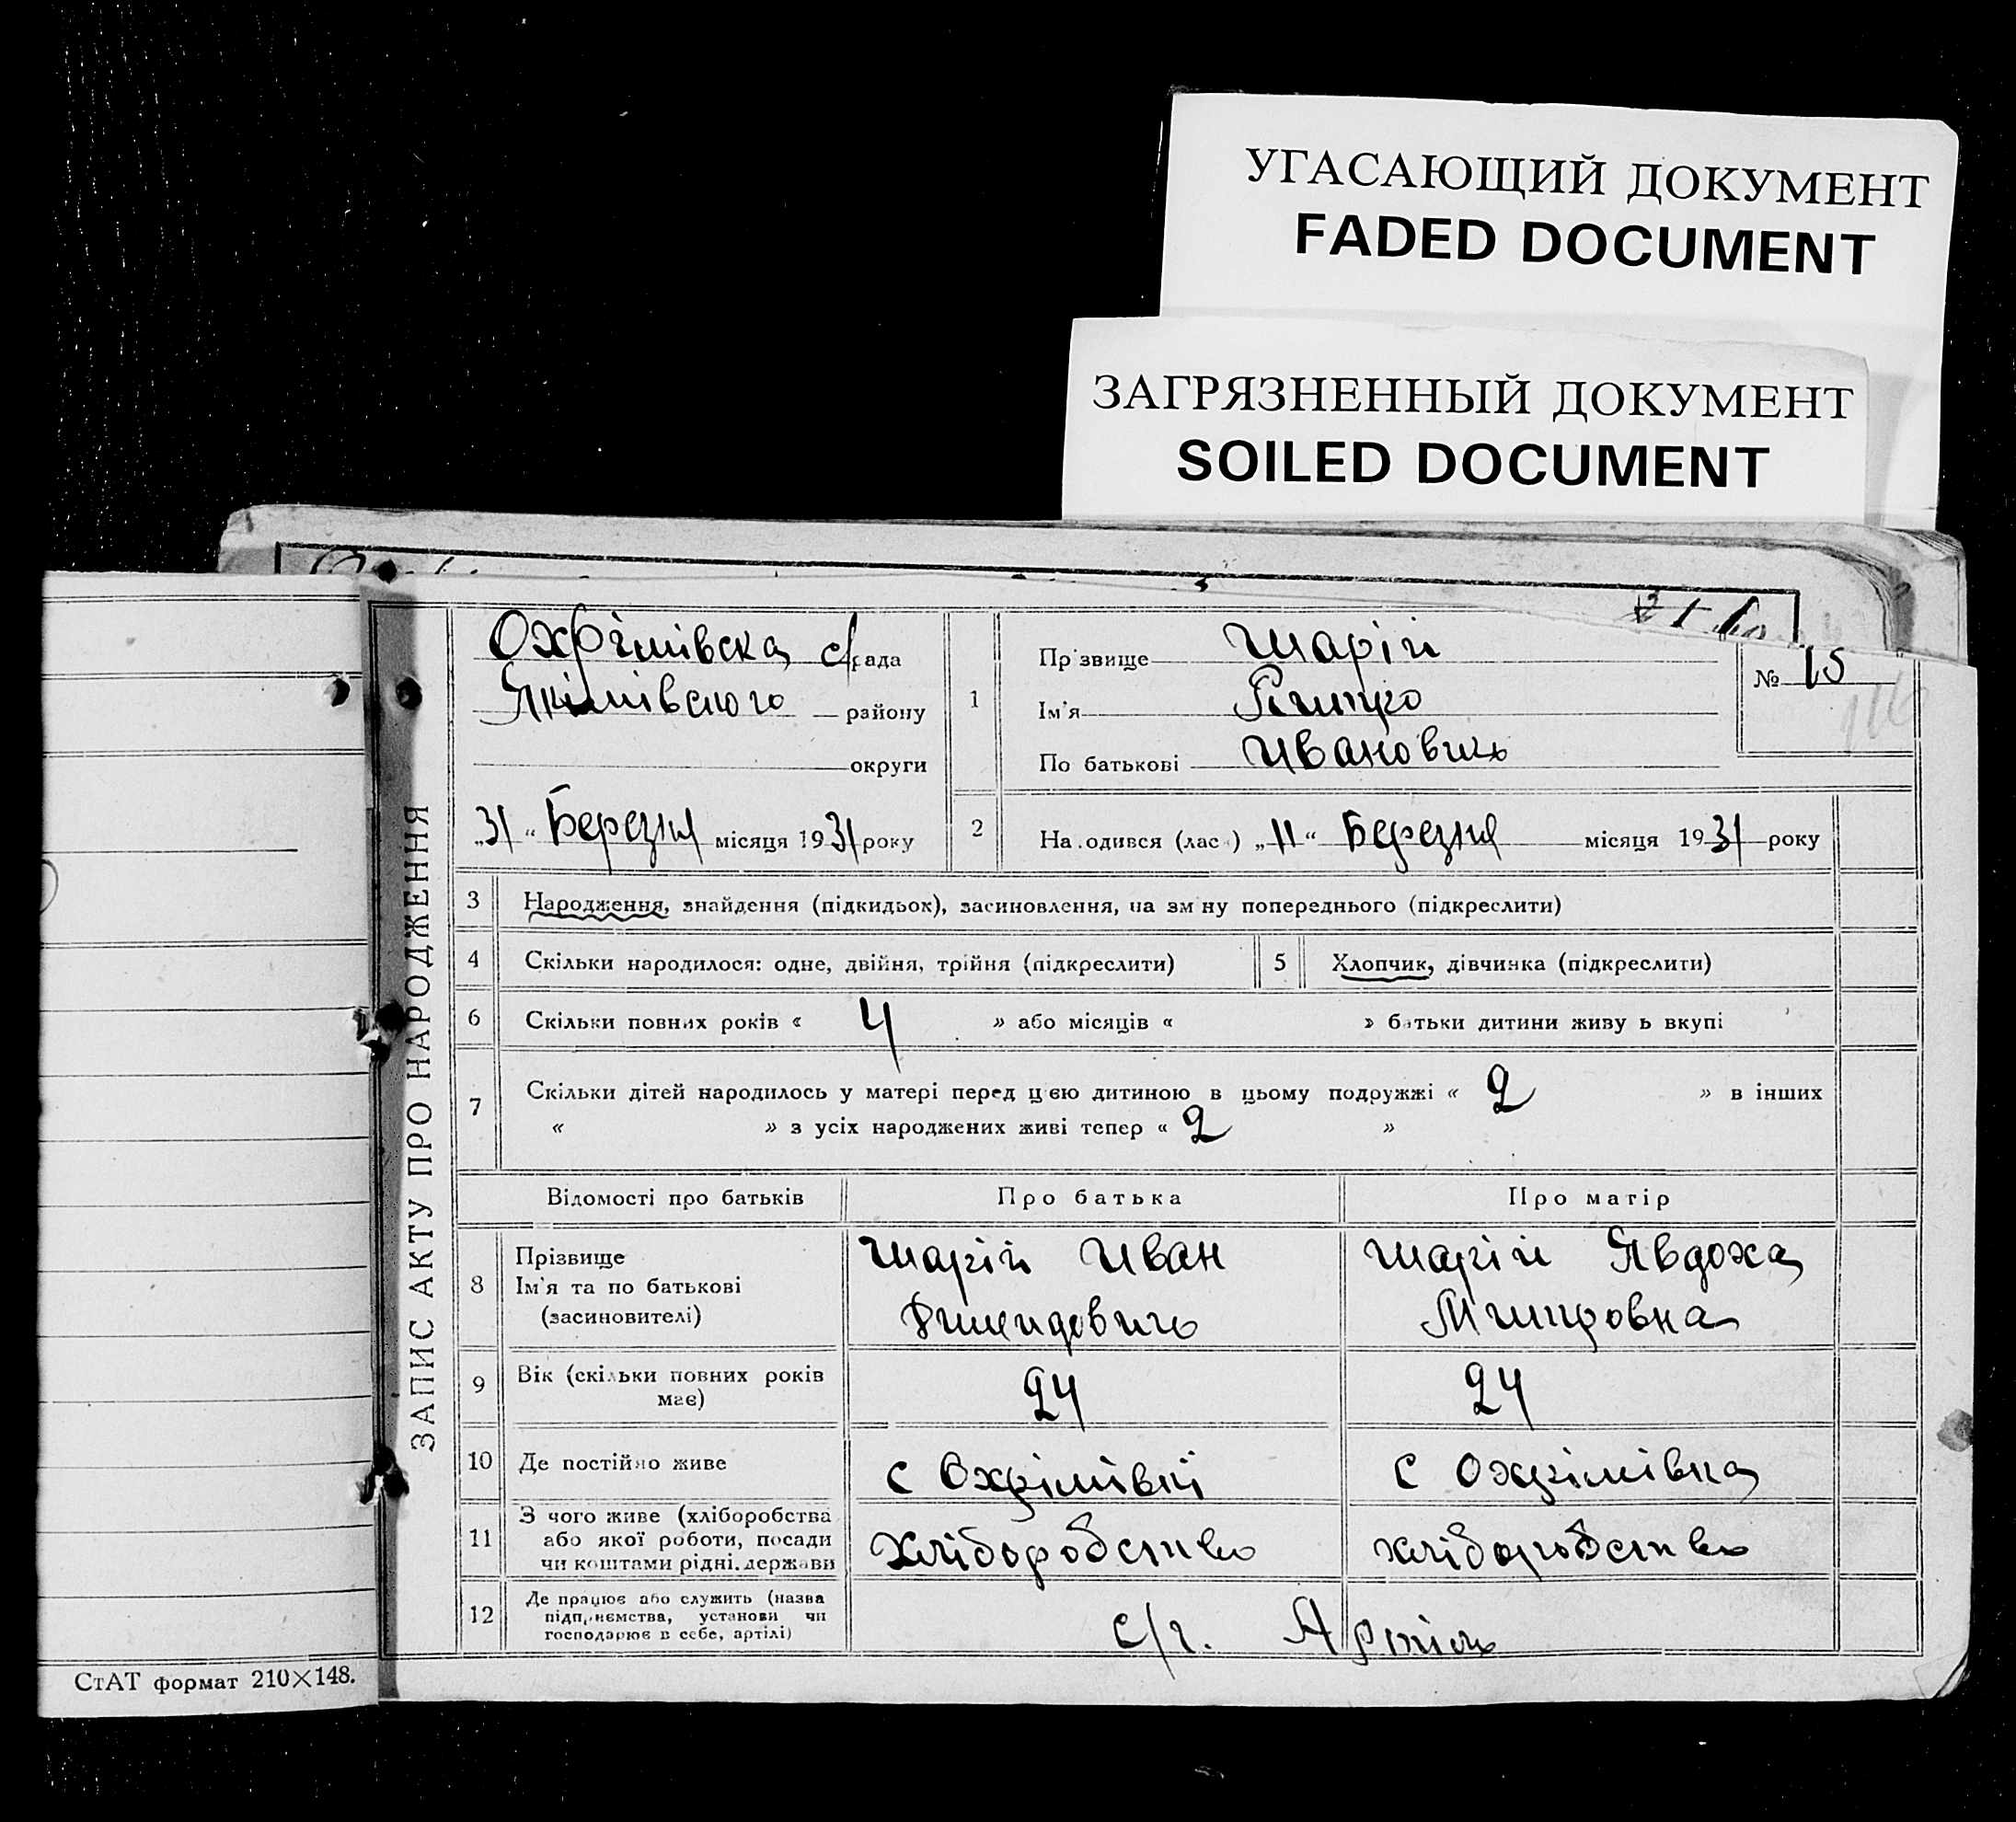 УГАСАЮЩИЙ ДОКУМЕНТ
FADED DOCUMENT
ЗАГРЯЗНЕННЫЙ ДОКУМЕНТ
SOILED DOCUMENT
ЗАПИС АКТУ ПРО НАРОДЖЕННЯ
Охрімівска с/рада
Якімівского району
округи
„31“ Березня місяця 1931 року
1
Пр звище Шарій
Ім'я
По батькові Ивановичь
№ 15
116
2
На одився (лас ) „11“ Березня місяця 1931 року
3 Народження, знайдення (підкидьок), засиновлення, на зм ну попереднього (підкреслити)
4 Скільки народилося: одне, двійня, трійня (підкреслити)
5 Хлопчик, дівчинка (підкреслити)
6 Скільки повних років « 4 » або місяців « » батьки дитини живу ь вкупі
7 Скільки дітей народилось у матері перед цією дитиною в цьому подружжі « 2 » в інших
« » з усіх народжених живі тепер « 2 »
Відомості про батьків Про батька Про матір
8 Прізвище
Ім'я та по батькові
(засиновителі)
Шарій Иван
Шарій Явдоха
Митровна
9 Вік (скільки повних років
має)
24
24
10 Де постійно живе
с Охрімівкі
с Охрімівка
11 З чого живе (хліборобства
або якої роботи, посади
чи коштами рідні, держави
Хліборобство
хліборобство
12 Де працює або служить (назва
підп иємства, установи чи
господарює в себе, артілі)
с/г. Артіль
СтАТ формат 210×148.